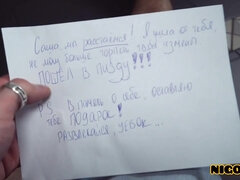 Саша, мы расстаёмся! Я ушла от тебя,
не могу больше терпеть твои измены.
ПОШЁЛ В ПИЗДУ!!!
P.S. В память о себе, оставляю
тебе ПОДАРОК!
РАЗВЛЕКАЙСЯ, УЁБОК...
NIGO